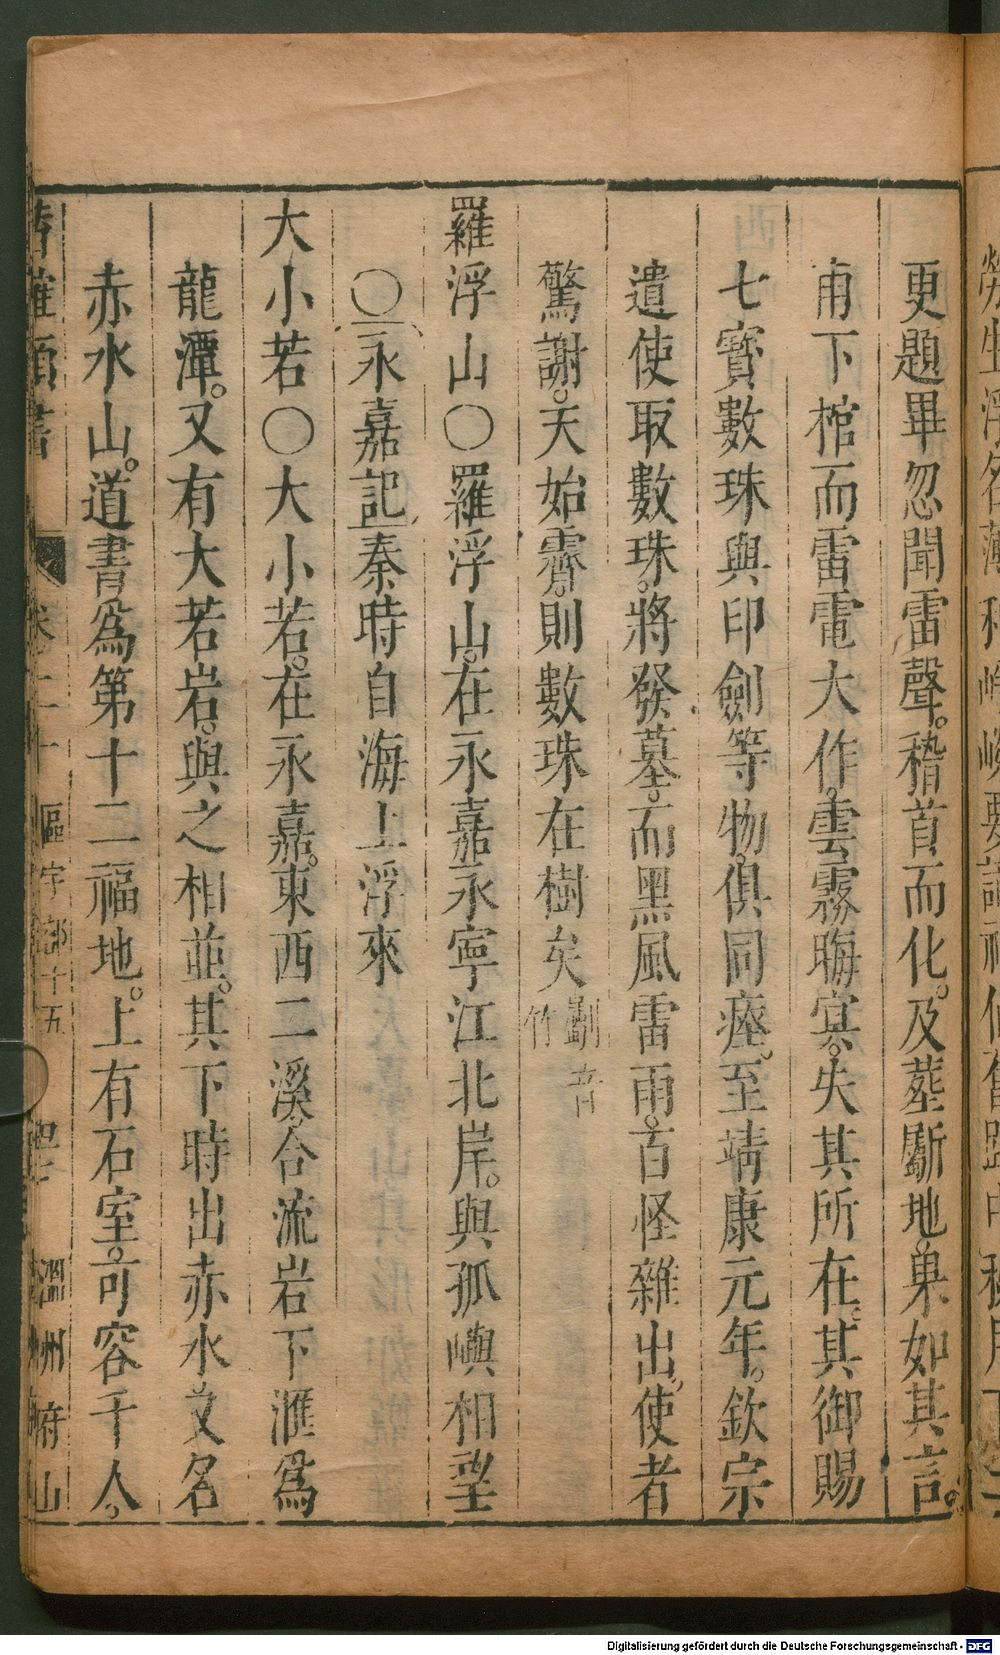 更題畢忽聞雷聲。稽首而化。及葬斸地。果如其言。
甫下棺而雷電大作。雲霧晦冥。失其所在。其御賜
七寶數珠與印劍等物。俱同瘞。至靖康元年。欽宗
遣使取數珠。將發墓。而黑風雷雨。百怪雜出。使者
驚謝。天始霽。則數珠在樹矣 斸音竹
羅浮山〇羅浮山。在永嘉永寧江北岸。與孤嶼相望
〇永嘉記秦時自海上浮來
大小若〇大小若。在永嘉。東西二溪。合流岩下滙爲
龍潭。又有大若岩。與之相並。其下時出赤水又名
赤水山。道書爲第十二福地。上有石室。可容千人。
卷二十 區宇部十五 溫州府山
Digitalisierung gefördert durch die Deutsche Forschungsgemeinschaft - DFG